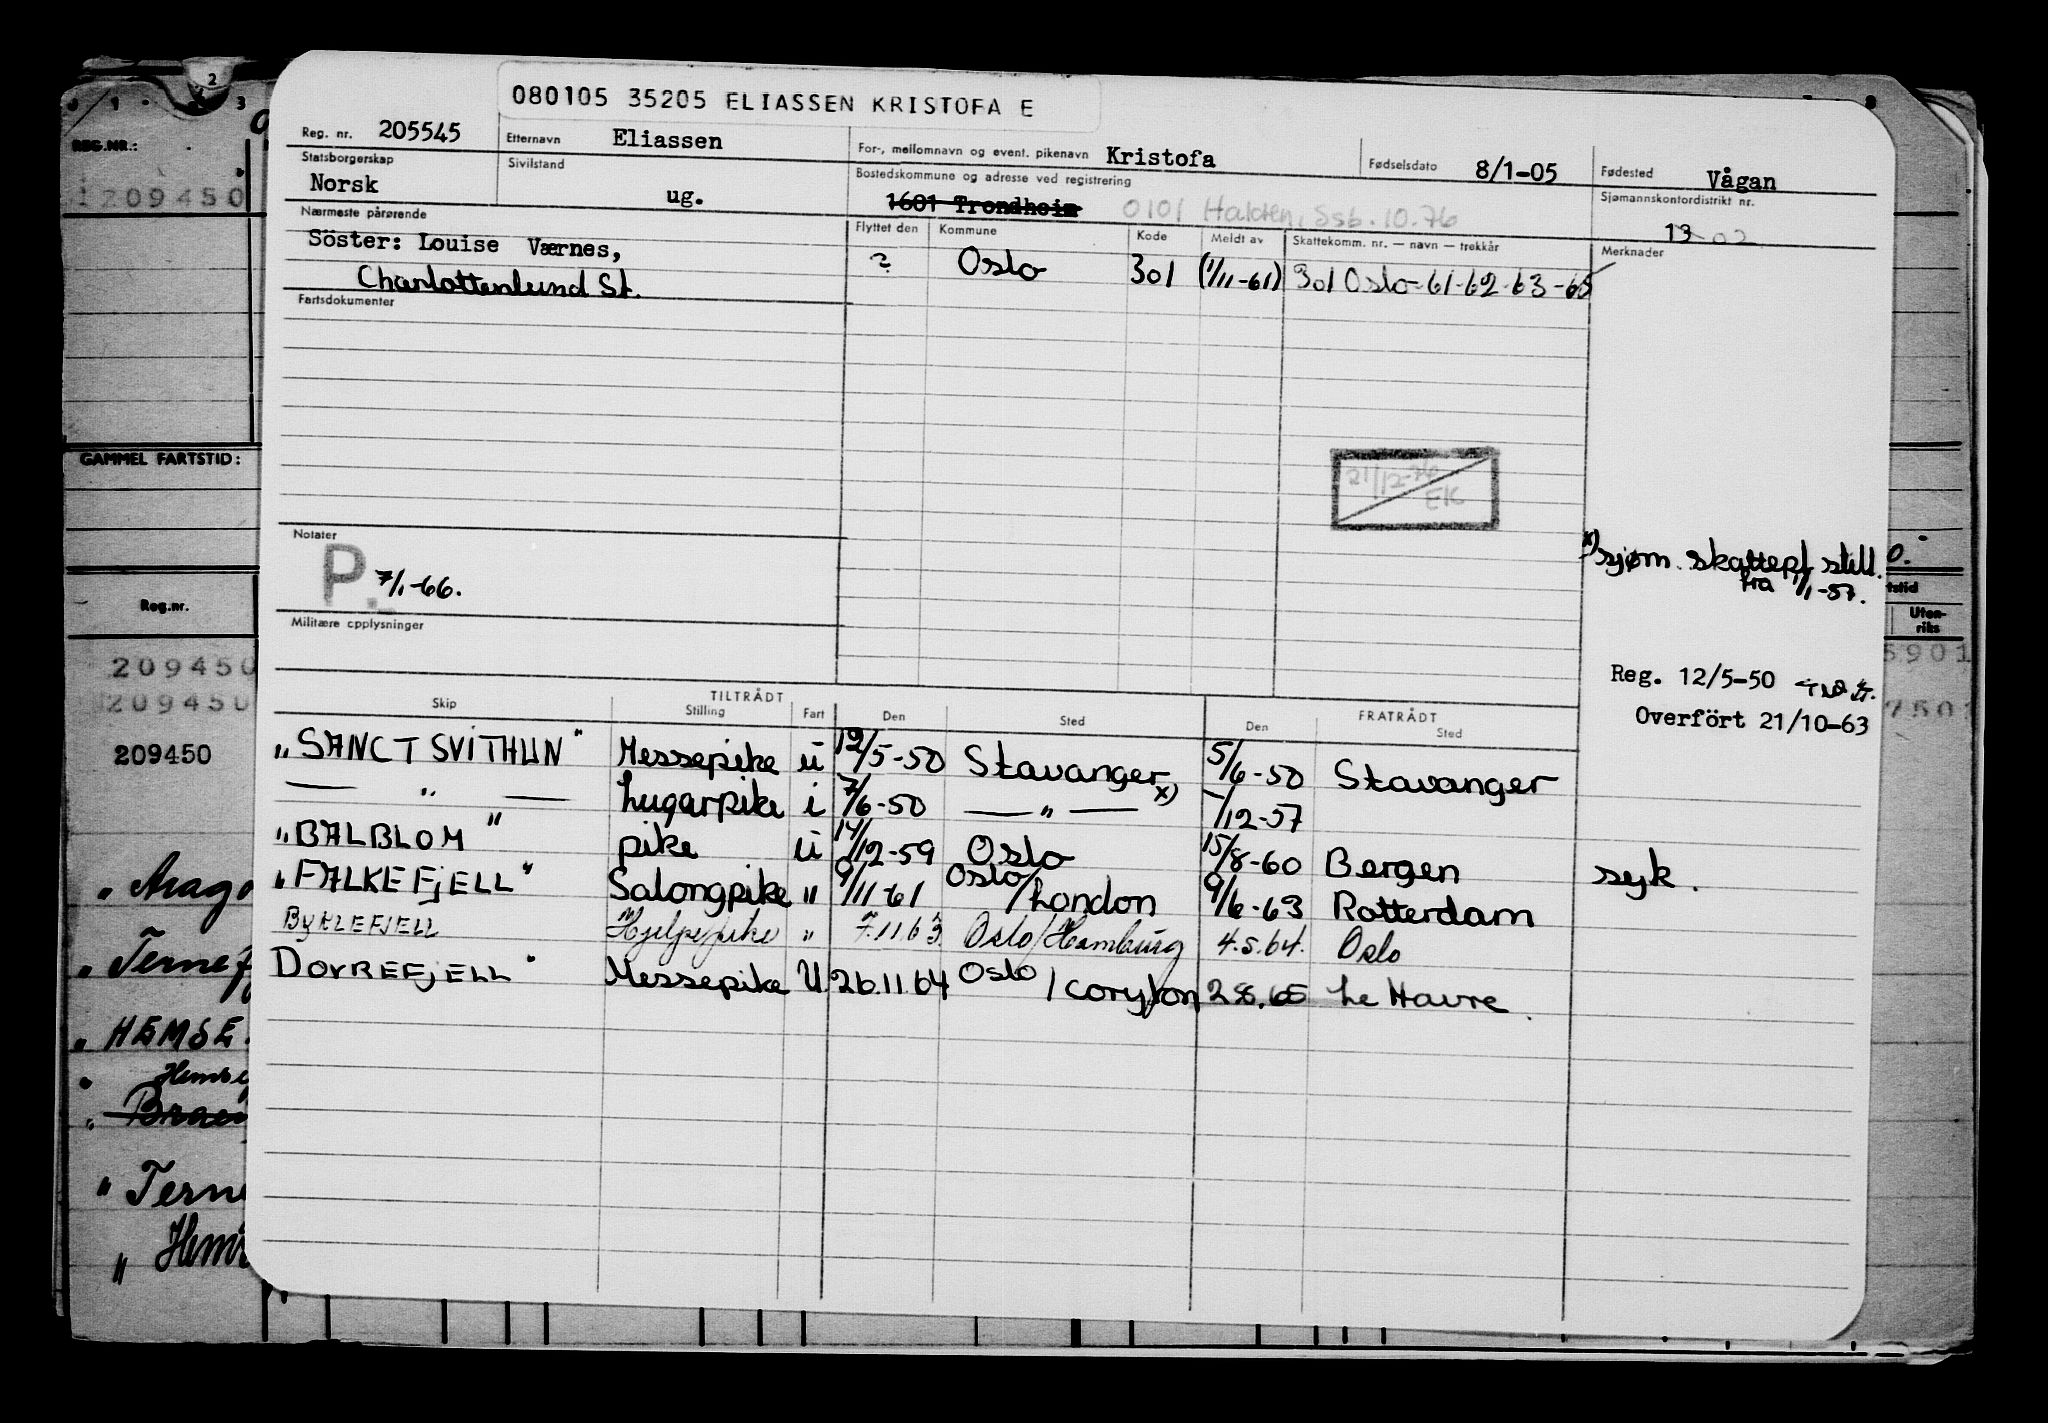 080105 35205 ELIASSEN KRISTOFA E
Reg. nr. 205545 Etternavn Eliassen For-, mellomnavn og event. pikenavn Kristofa Fødselsdato 8/1-05 Fødested Vågan
Statsborgerskap Norsk Sivilstand ug. Bostedskommune og adresse ved registrering 1601 Trondheim 0101 Halden, Ssb. 10.76 Sjømannskontordistrikt nr. 13 02
Nærmeste pårørende Flyttet den Kommune Kode Meldt av Skattekomm. nr. — navn — trekkår Merknader
Söster: Louise Værnes, ? Oslo 301 (1/11-61) 301 Oslo-61-62-63-65
Charlottenlund St.
Fartsdokumenter
21/12-76
EK
Notater
P. 7/1-66.
x) sjøm. skattepl. still.
fra 1/1-57.
Militære opplysninger
Reg. 12/5-50
Overfört 21/10-63
TILTRÅDT FRATRÅDT
Skip Stilling Fart Den Sted Den Sted
"SANCT SVITHUN" Messepike u 12/5-50 Stavanger 5/6-50 Stavanger
— " — Lugarpike i 7/6-50 — " — x) -/12-57
"BALBLOM" pike u 14/12-59 Oslo 15/8-60 Bergen syk.
"FALKEFJELL" Salongpike " 9/11-61 Oslo/London 9/6-63 Rotterdam
BYKLEFJELL Hjelpepike " 7.11.63 Oslo/Hamburg 4.5.64. Oslo
DOVREFJELL" Messepike U 26.11.64 Oslo/Coryton 2.8.65 Le Havre.
2
3
REG.NR.:
209450
GAMMEL FARTSTID:
Reg.nr.
209450
209450
209450
Uten-
riks
5901
7501
"HEMSE